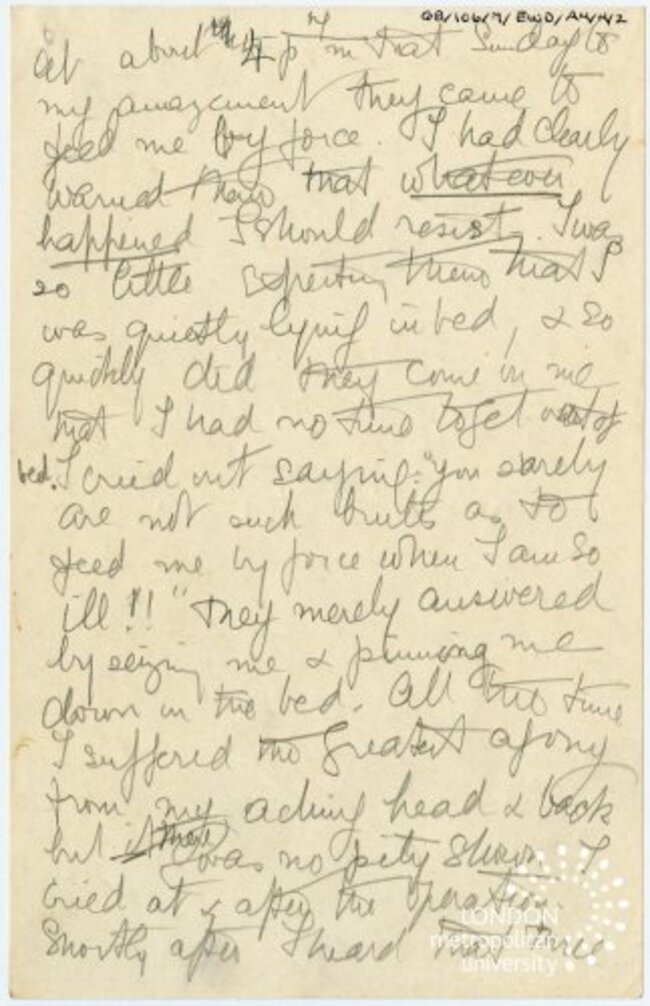 GB/106/7/EWD/A4/4/2
At about 4 p m that Sunday to
my amazement they came to
feed me by force. I had clearly
warned them that whatever
happened I should resist. I was
so little expecting them that I
was quietly lying in bed, & so
quickly did they come in me
that I had no time to get out of
bed. I cried out saying: "you surely
are not such brutes as to
feed me by force when I am so
ill!!" They merely answered
by seizing me & pinning me
down in the bed. All the time
I suffered the greatest agony
from my aching head & back
but there was no pity shown. I
cried at & after the operation.
Shortly after I heard that
LONDON
metropolitan
university